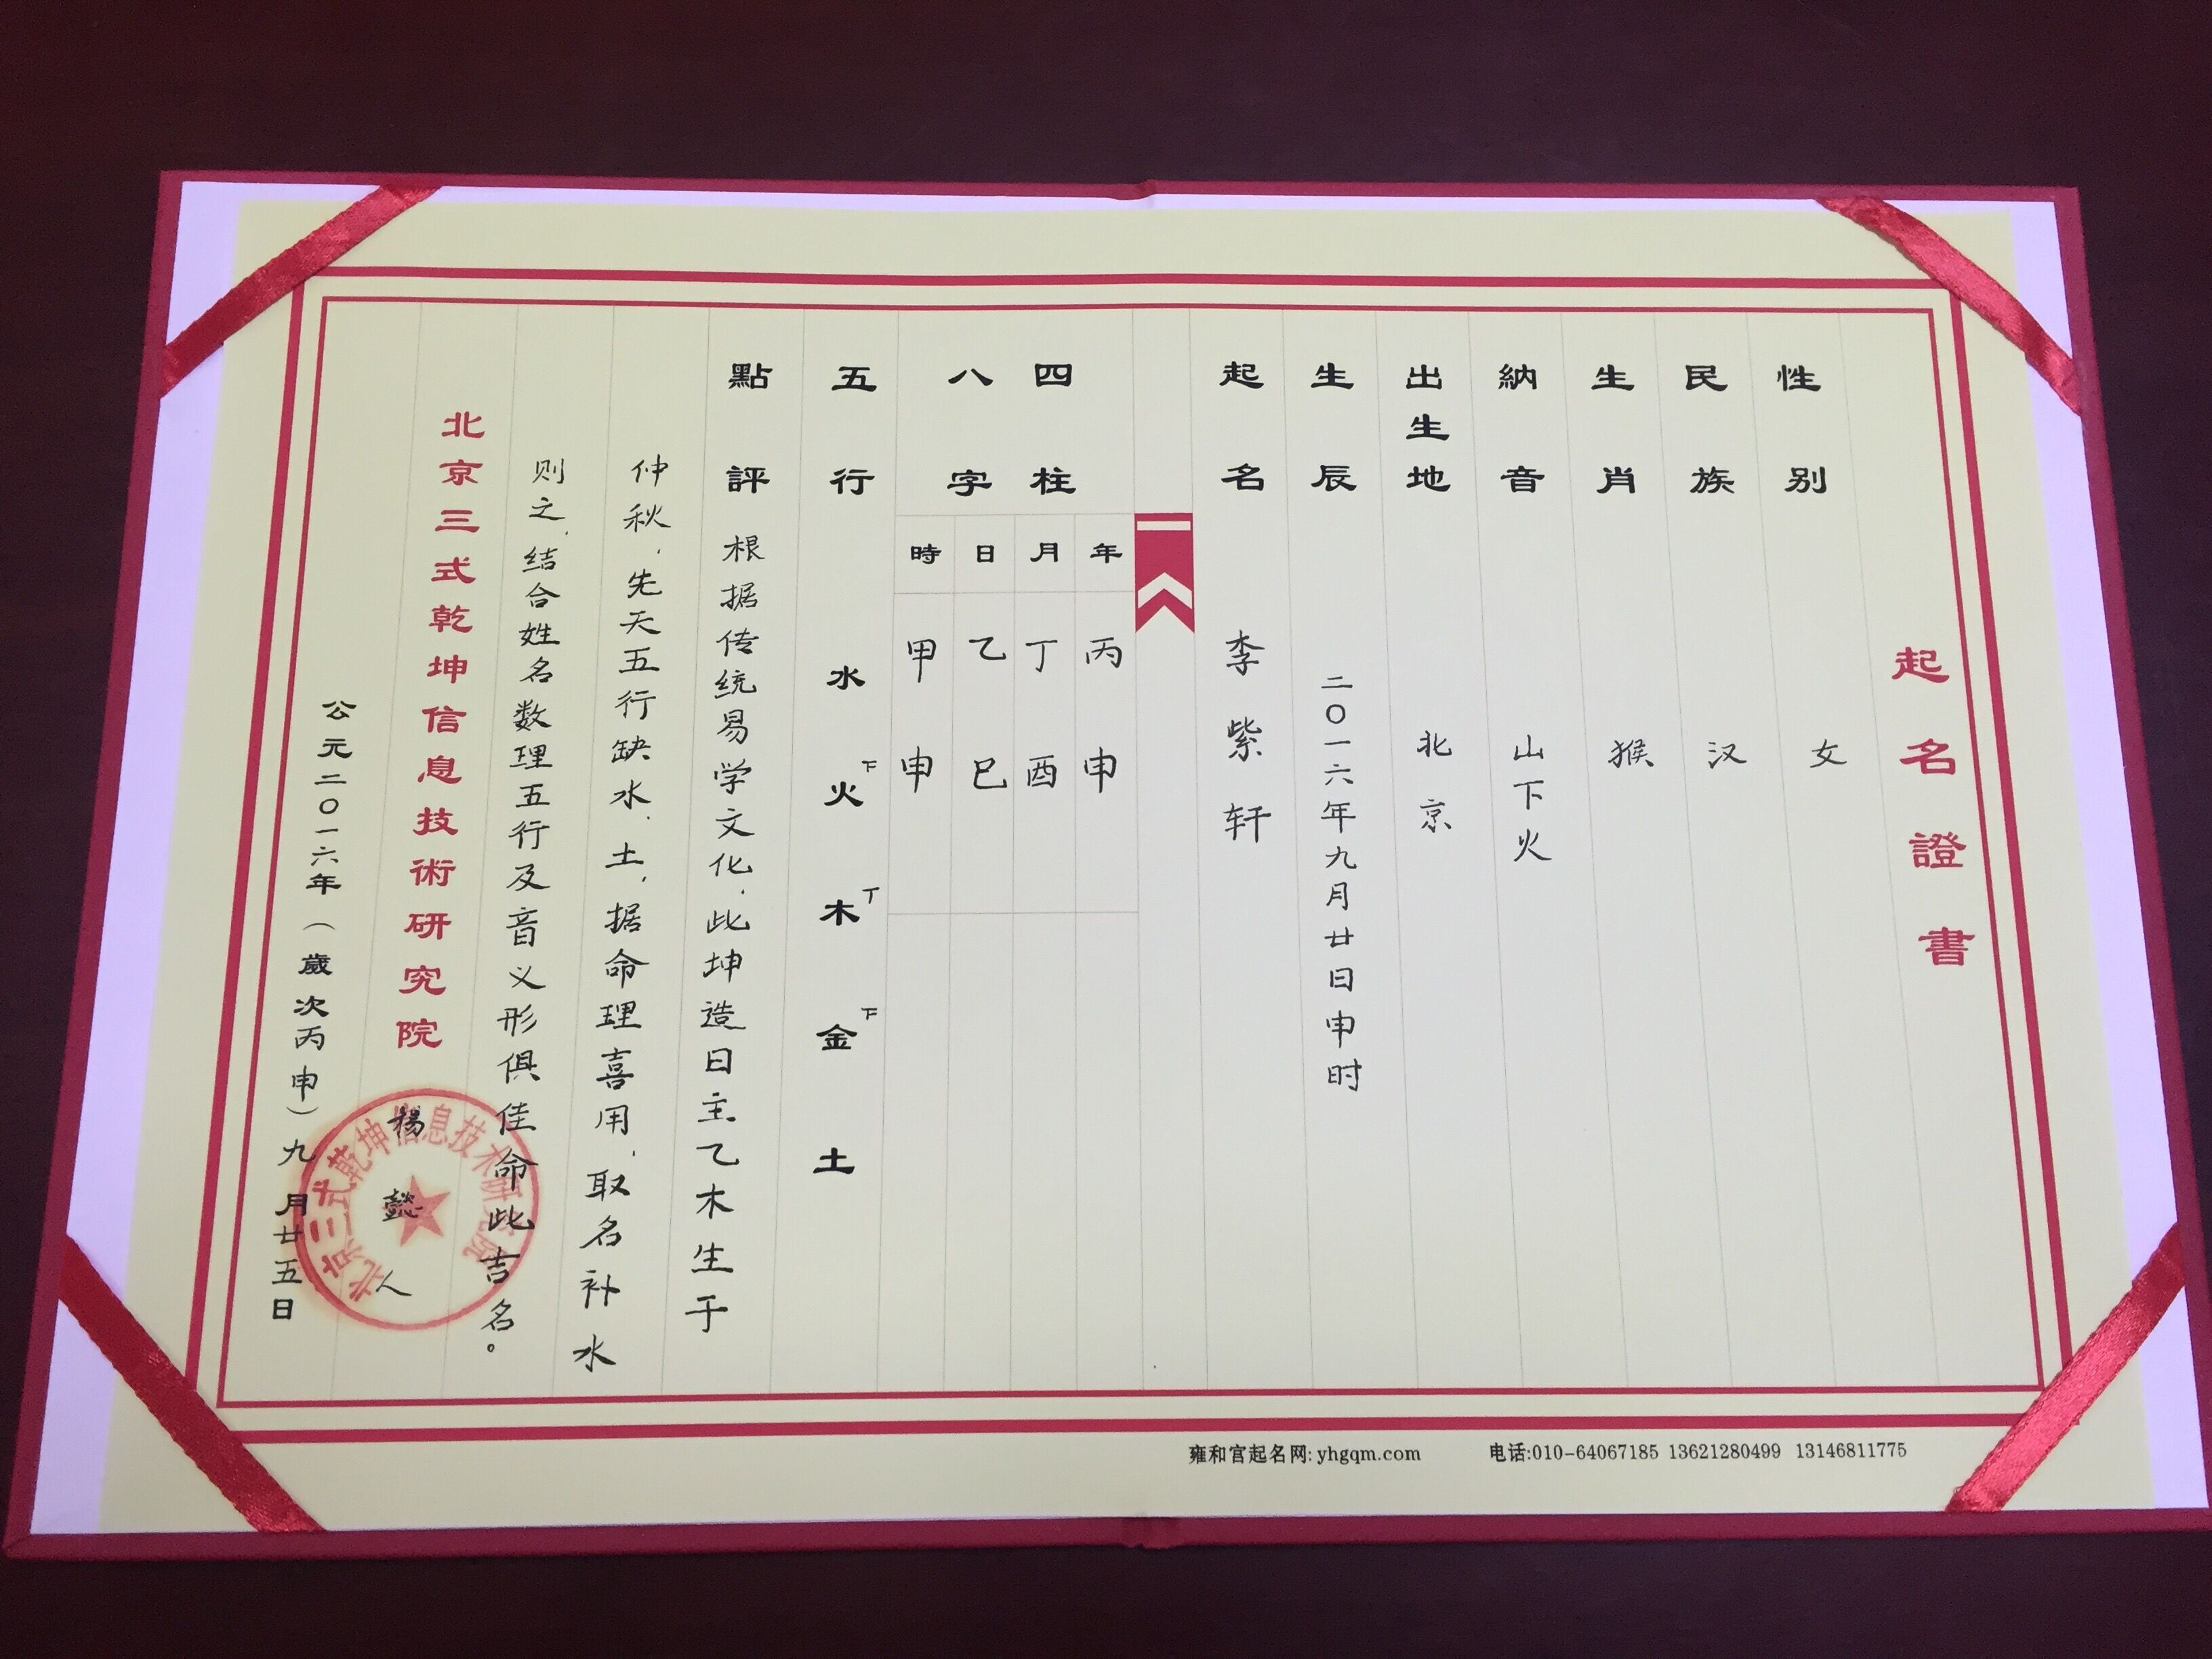 起名證書
性别 女
民族 汉
生肖 猴
納音 山下火
出生地 北京
生辰 二〇一六年九月廿日申时
起名 李紫轩
四柱
八字
年 丙申
月 丁酉
日 乙巳
時 甲申
五行 水 火 木 金 土
點評 根据传统易学文化,此坤造日主乙木生于
仲秋,先天五行缺水、土,据命理喜用,取名补水
则之,结合姓名数理五行及音义形俱佳命此吉名。
北京三式乾坤信息技術研究院
杨懿人
北京三式乾坤信息技术研究院
公元二〇一六年(歲次丙申)九月廿五日
雍和宫起名网: yhgqm.com 电话:010-64067185 13621280499 13146811775